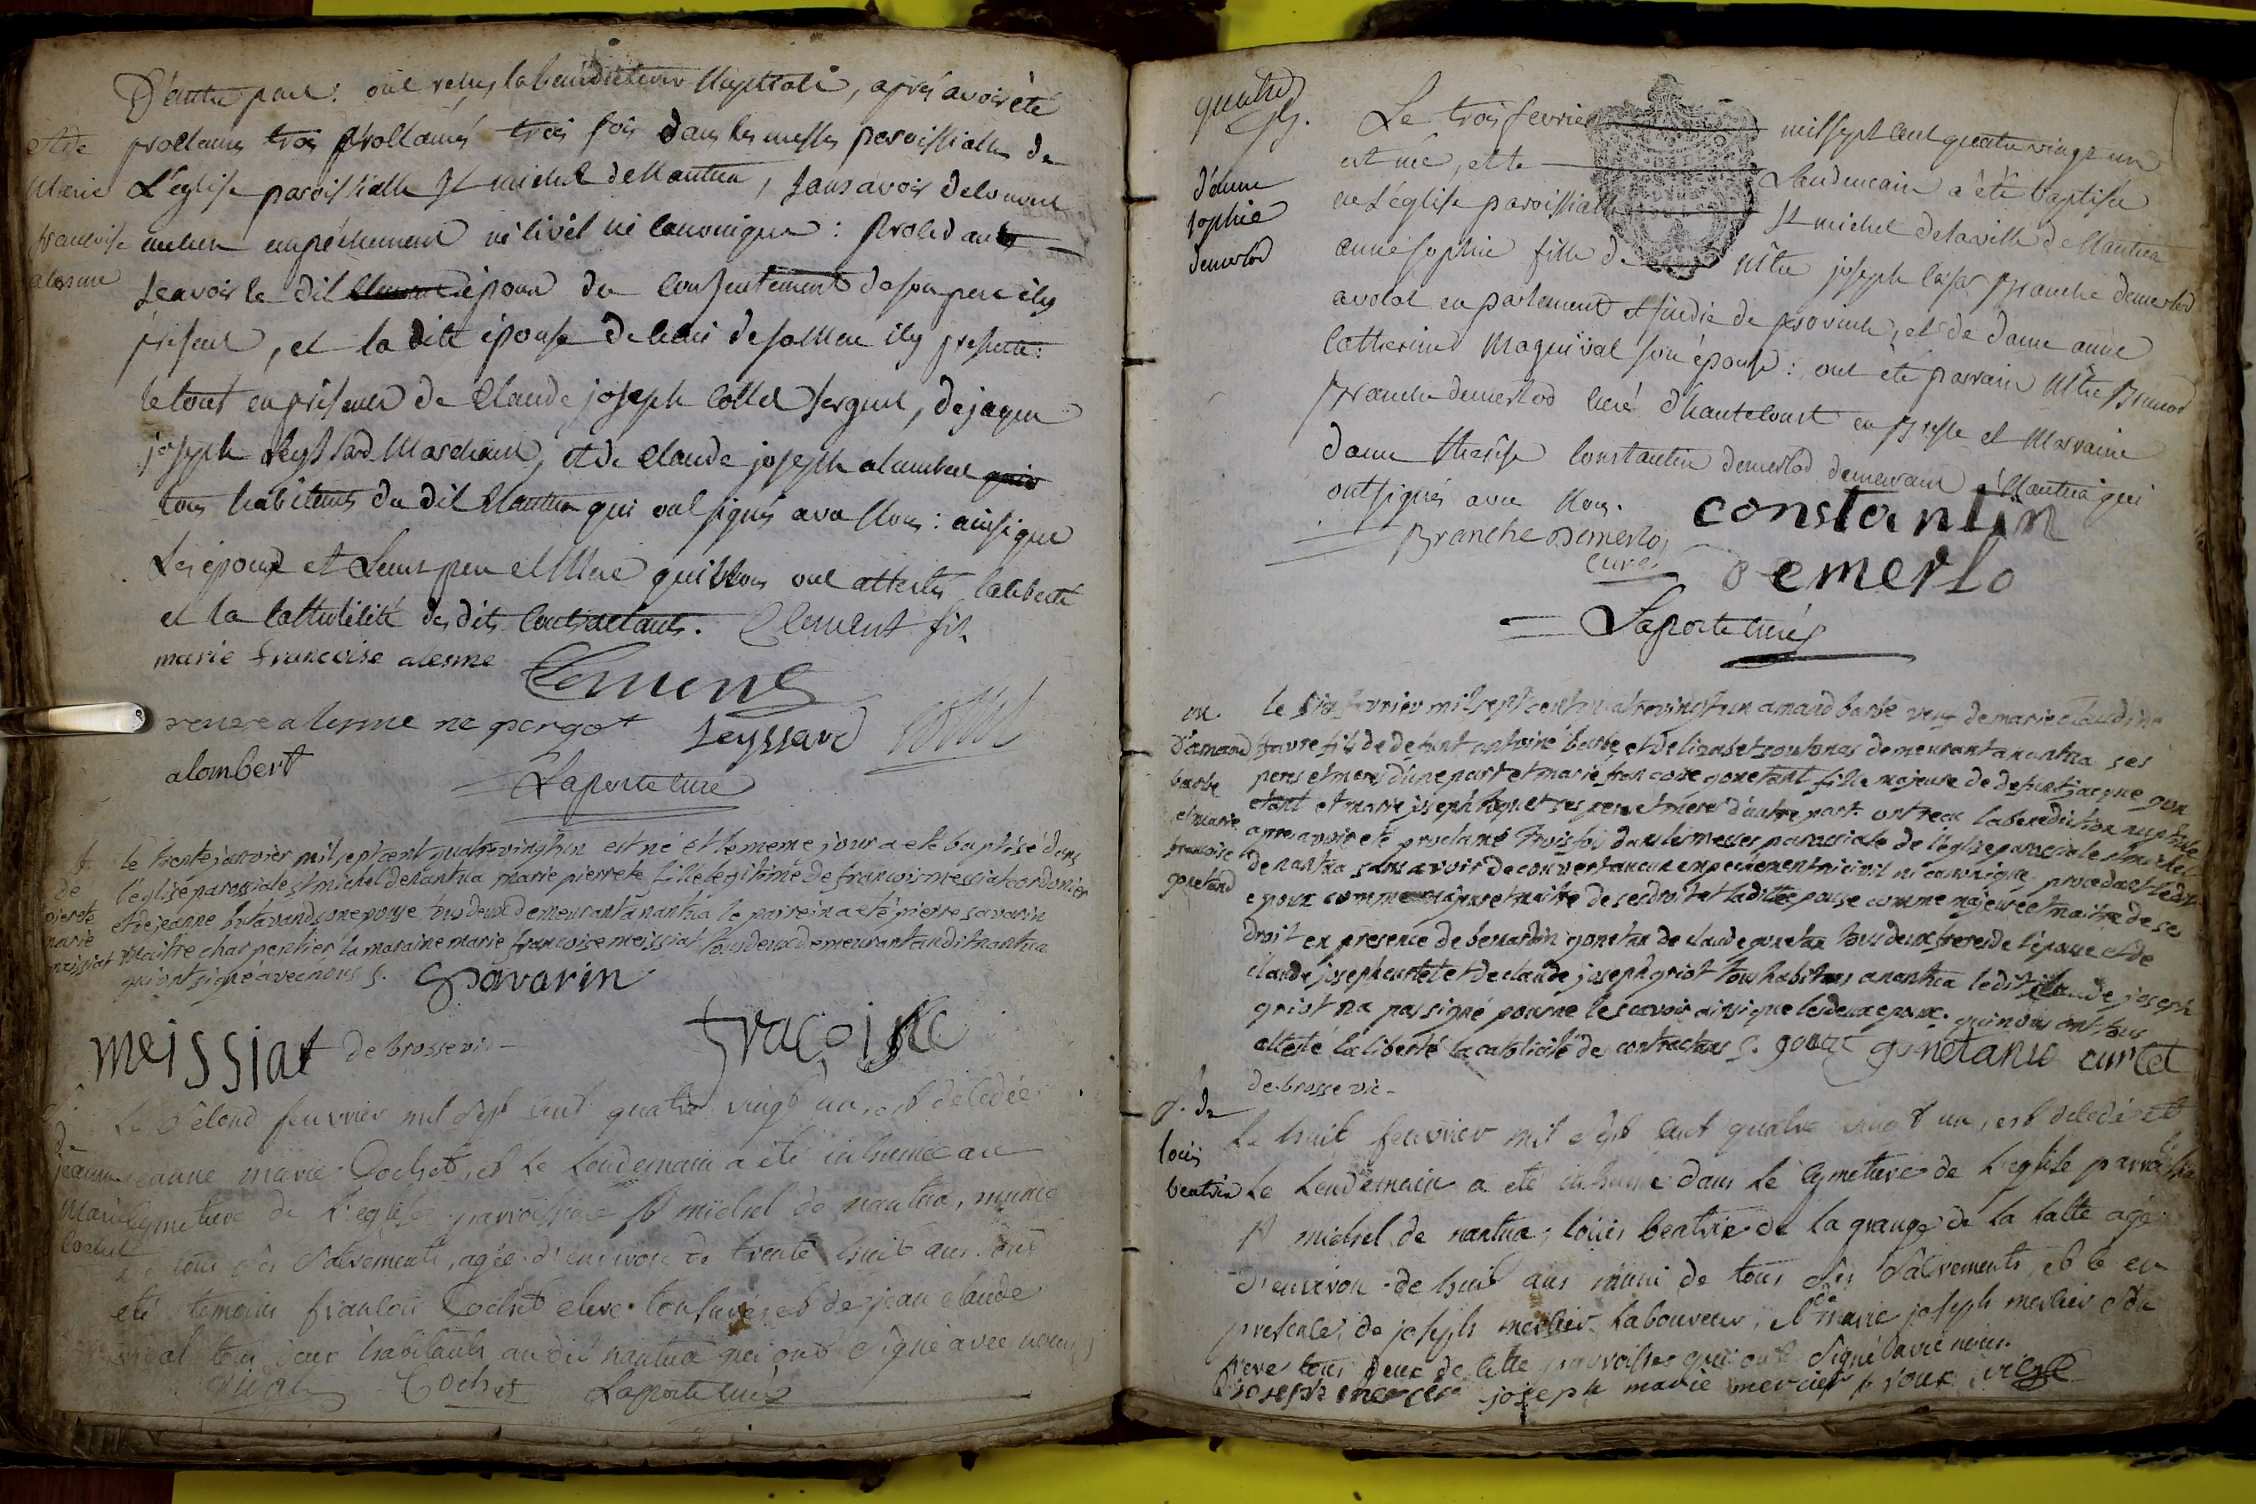 D'autre part: ont reçus la bénédiction Nuptiale, après avoir été
et de
Marie
francoise
alesme
proclamés trois proclamés trois fois dans les messes paroissialles de
L'église paroissialle St michel de Nantua, sans avoir decouvert
aucun empéchement ni civil ni canonique: procedants
scavoir le dit époux du consentement de son pere icy
présent, et la dite épouse de celui de sa Mere icy presente:
le tout en présence de Claude joseph Collet sergent, de jaque
joseph Leyssard Marchand, et de Claude joseph alombert
tous habitants du dit Nantua qui ont signés avec Nous: ainsi que
Les époux et Leurs pere et Mere qui Nous ont attestés la liberté
et la catholicité des dits contractants. Clement fils
marie francoise alesme Clement
alerme ne pergot Leyssard
alombert
Laporte curé
de
pierete
marie
meissiat
le trente janvier mil sept cent quatrevingt un est né et le meme jour a eté baptisé dans
l'église paroissiale st michel de nantua marie pierrete fille legitime de francois meissiat cordonier
et de jeanne son epouse tous deux demeurant a nantua le parrein a eté pierre savarin
maitre charpentier la maraine marie francoise meissiat tous deux demeurant audit nantua
qui ont signé avec nous s. Savarin
meissiat de brosse vic- fracoise
de
jeanne
Marie
Cochet
Le second feuvrier mil sept cent quatre vingt un, est decedée
jeanne marie Cochet, et le Lendemain a été inhumée au
Cymetiere de L'eglise parroissiale St michel de nantua, munie
de tous ses sacrements, agée d'environ de trente huit ans, ont
eté temoins francois Cochet clerc tonsuré, et de jean claude
vical tous deux habitants au dit nantua qui ont signé avec nous
Cochet Laporte curé
quatre
d'anne
sophie
demerlod
Le trois fevrier mil sept cent quatre vingt un
est née, et le Lendemain a été baptisée
en L'église paroissialle St michel de la ville de Nantua
anne sophie fille de Mtre joseph Branche demerlod
avocat en parlement et sindic de province, et de dame anne
Catherine Maguival son épouse: ont été parrain Mtre
Branche demerlod curé d'hautecourt en Bresse et Marraine
dame therèse Constantin demerlod demeurant a Nantua qui
ont signés avec Nous. constantin
Branche Demerlod
curé Demerlo
Laporte curé
m.
d'amand
barbe
et marie
francoise
gonetand
le six fevrier mil sept cent quatrevingt un amand barbe veuf de marie claudine
favre fils de defunt antoine barbe et de elizabet demeurant a nantua ses
peres et meres d'une part et marie francoise gonetant fille majeure de defunt jacque gon
etant et marie joseph ses pere et meres d'autre part. ont recu la benediction nuptiale
apres avoir eté proclamé trois fois dans les messes paroissiale de l'eglise paroissiale st michel
de nantua sans avoir decouvert aucun empechement ni civil ni canonique procedant ledit
epoux comme majeur et maitre de ses droit et ladite epouse comme majeure et maitre de ses
droit en presence de bernardin gonetan de claude gonetan tous deux freres de l'epouse et de
claude joseph curtet et de claude joseph griot tous habitans a nantua ledit claude joseph
griot n'a pas signé pour ne le scavoir ainsi que les deux epoux. qui nous ont tous
attesté la liberté la catolicité des contractans s. gonetand curtet
de brosse vic-
s. de
louis
beatrix
Le huit feuvrier mil sept cent quatre vingt un, est decedé et
Le Lendemain a eté inhumé dans le cymetiere de L'eglise parroissiale
St michel de nantua, louis beatrix de la grange de la latte agé
d'environ de huit ans muni de tous ses sacrements, et ce en
presence de joseph mercier Laboureur, et de marie joseph mercier son
frere tous deux de cette parroisse qui ont signé avec nous.
joseph mercier joseph marie mercier Roux vic